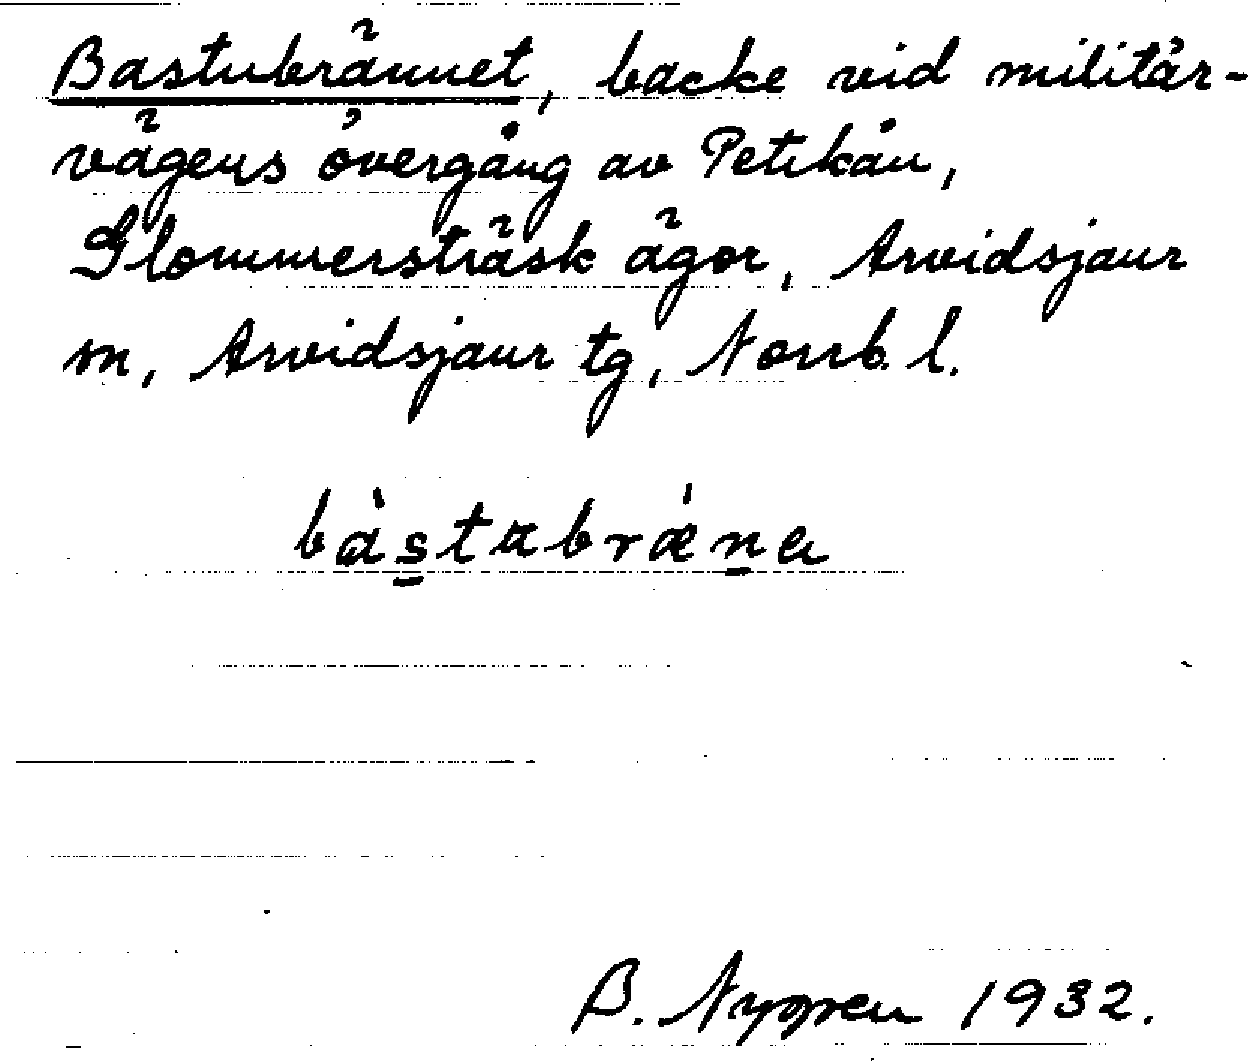 Bastubrännet, backe vid militär-
vägens övergång av Petikån,
Glommersträsk ägor, Arvidsjaur
sn, Arvidsjaur tg, Norrb. l.
bàstabrǽna
B. Nygren 1932.